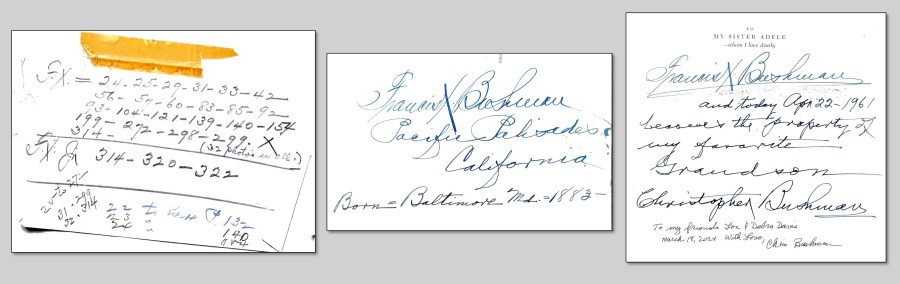 F.X. = 24-25-29-31-33-42
56-57-60-83-85-92
93-104-121-139-140-154
199-272-298-299. X
314-
(32 photos in all.)
F.X. Jr 314-320-322
22
23
24
132
140
Francis X Bushman
Pacific Palisades
California
Born=Baltimore Md.-1883-
TO
MY SISTER ADELE
—whom I love dearly
Francis X Bushman
and today Apr 22-1961
becomes the property of
my favorite
Grandson
Christopher Bushman
To my friends Lon & Debra Davis
March 18, 2024 With Love,
Chris Bushman